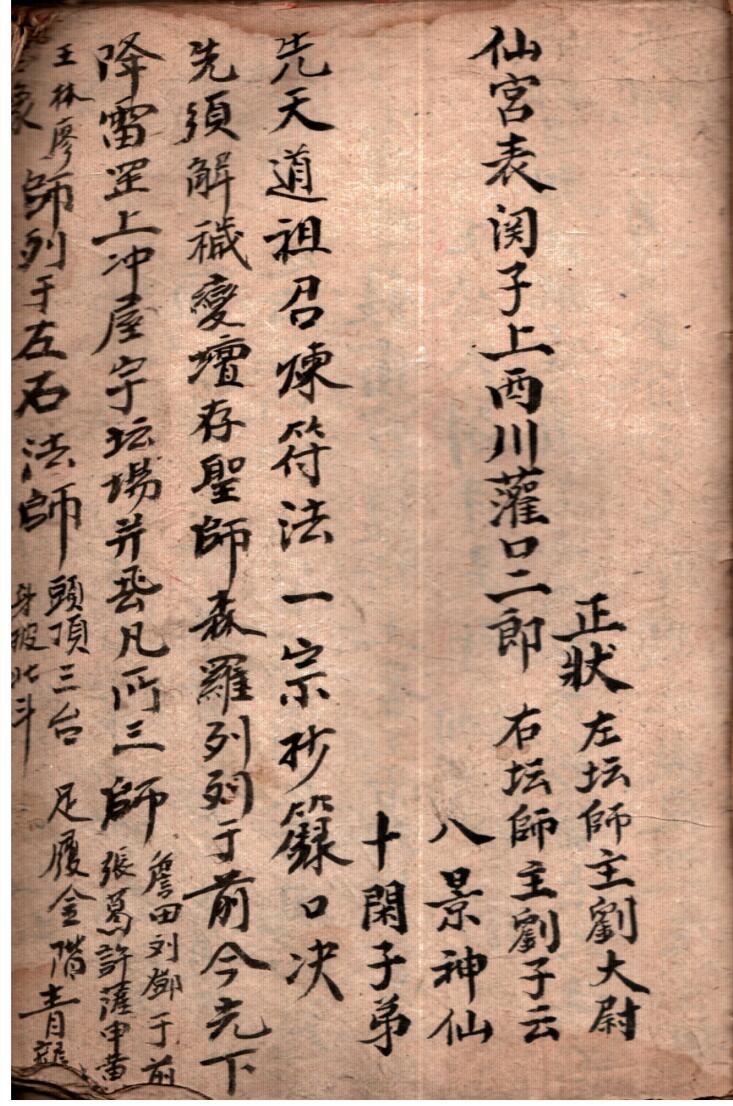 正狀 左坛師主劉大尉
仙宮表関子上西川灌口二郎 右坛師主劉子云
八景神仙
十閑子弟
先天道祖召煉符法一宗抄籙口决
先須解穢變壇存聖師森羅列列于前今先下
降雷罡上冲屋宇坛場并吞凡所三師
詹田刘鄧于前
張葛許薩申黄
王林廖
象師列于左石法師
頭頂三台 足履金階青龍
身披北斗